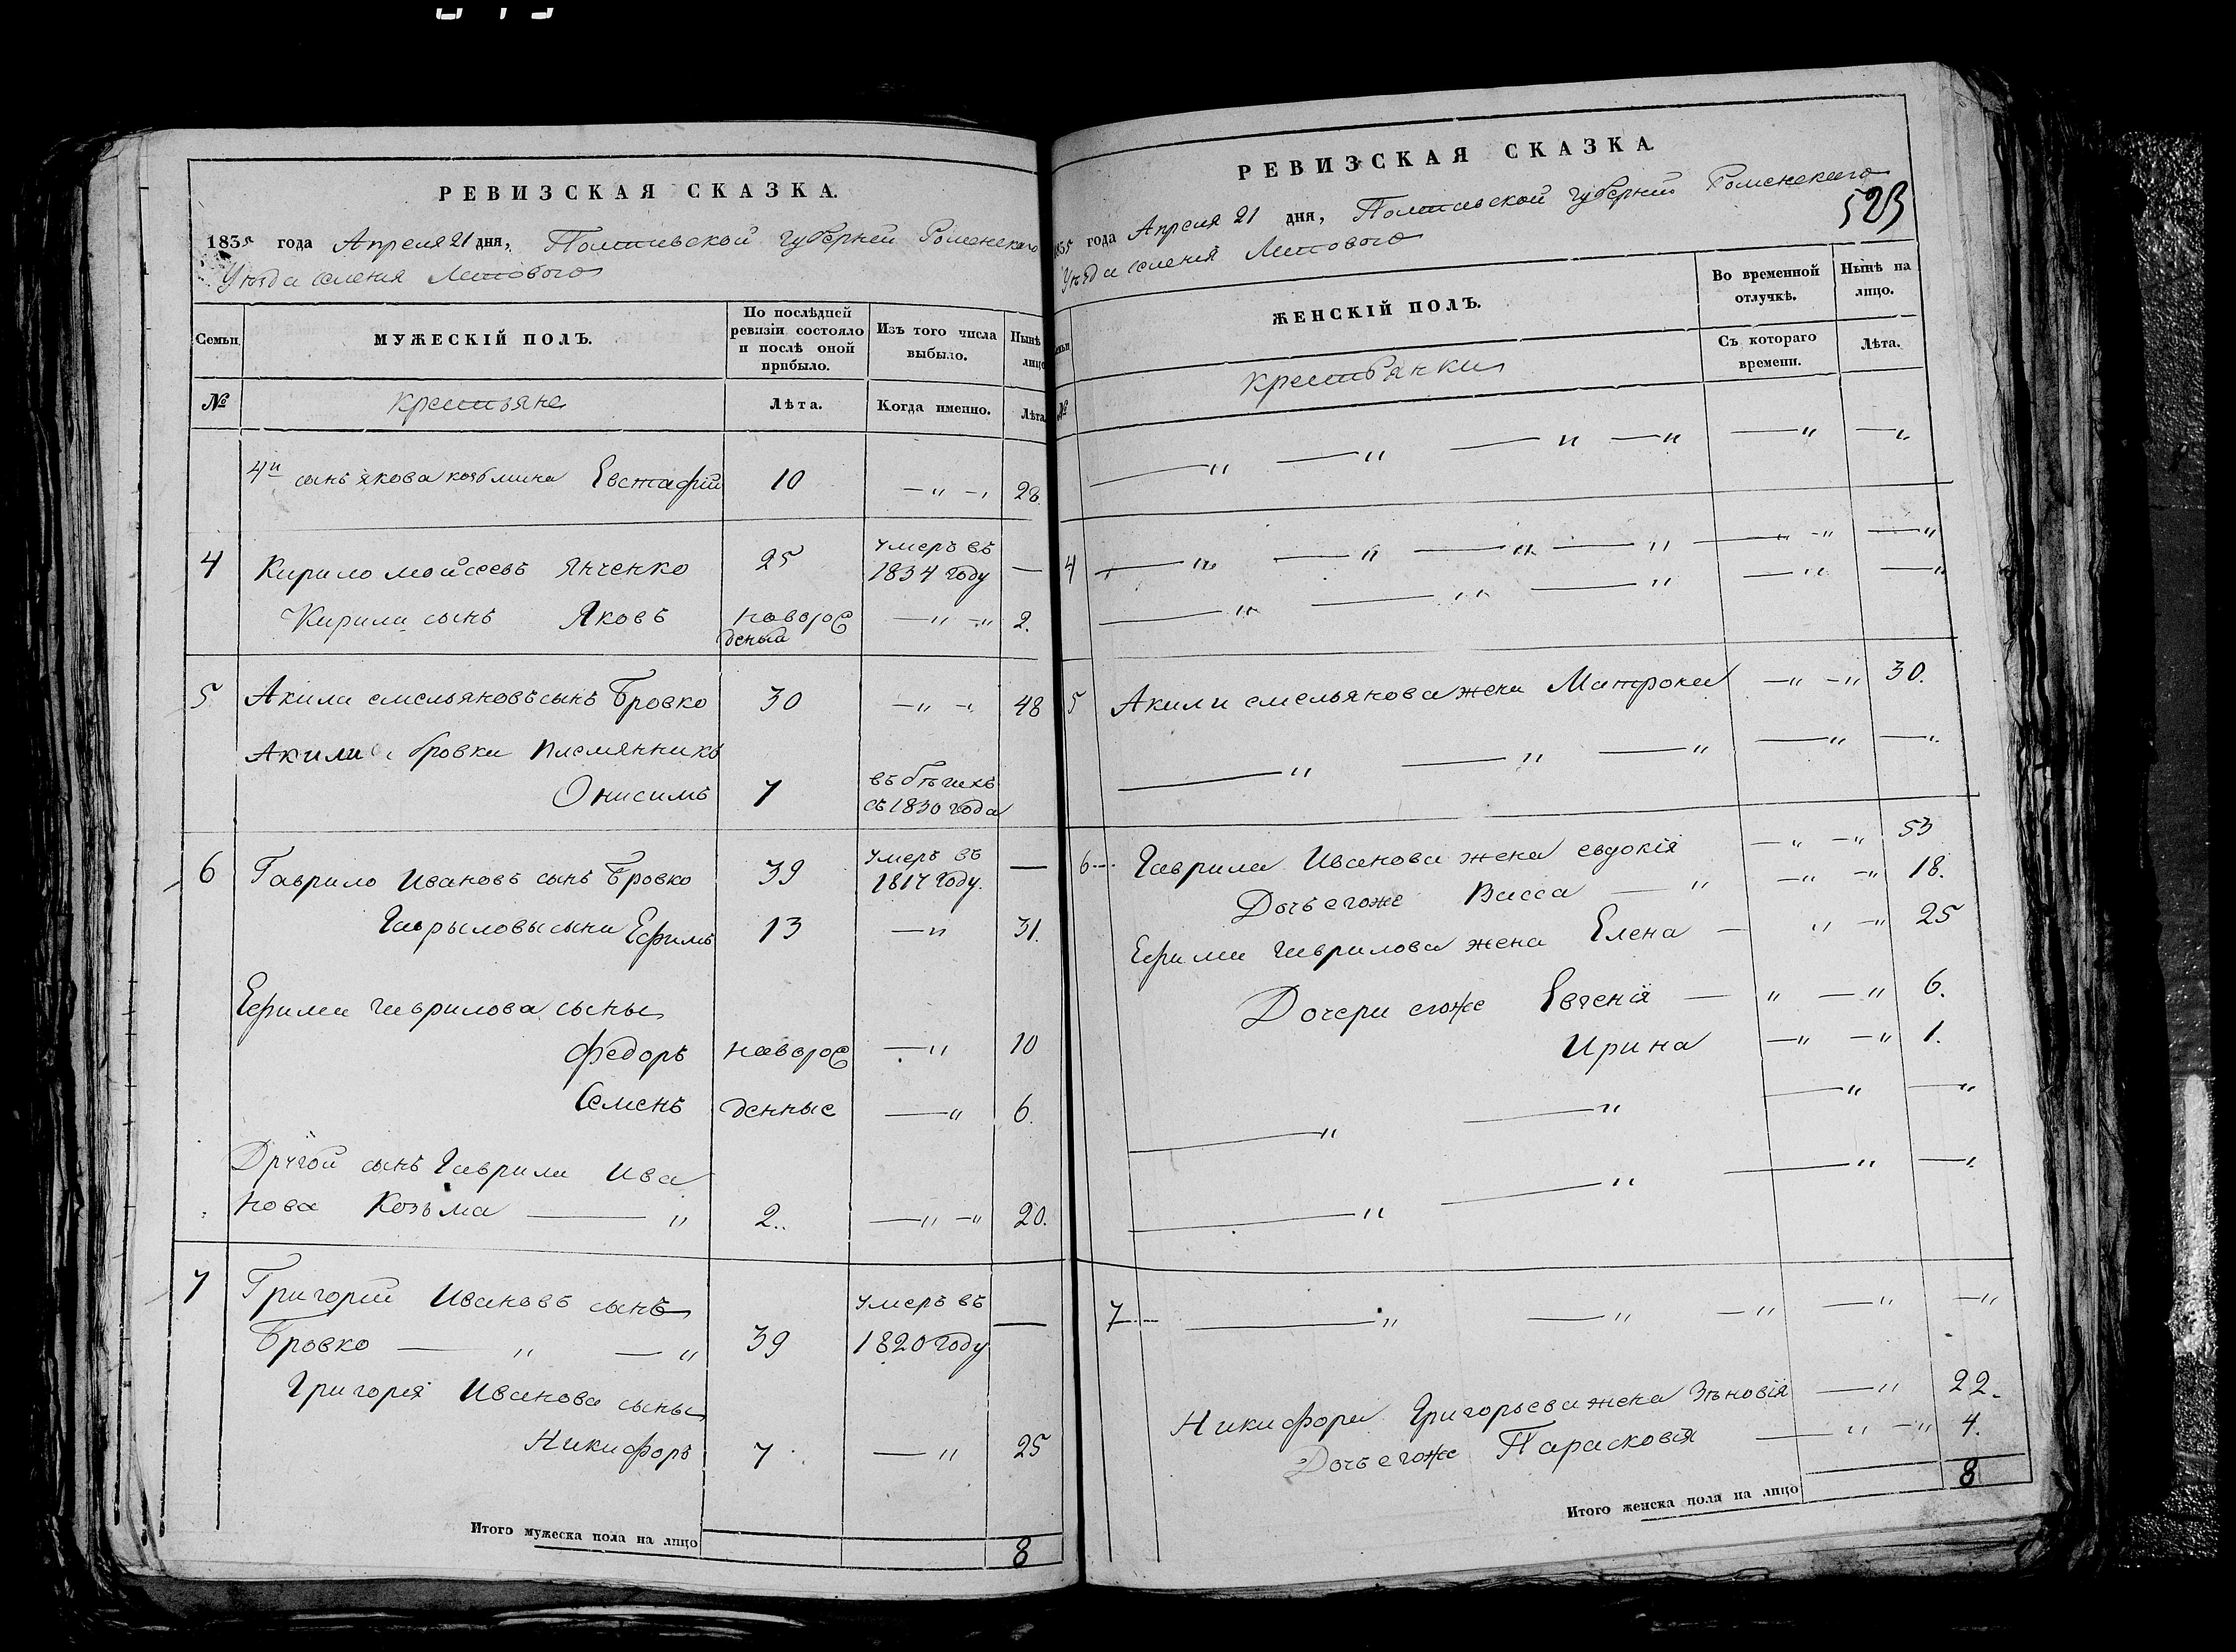 РЕВИЗСКАЯ СКАЗКА.
1835 года Апреля 21 дня, Полтавской губерніи Роменского
Уѣзда селенія Липового
Семьи
МУЖЕСКІЙ ПОЛЪ.
По послѣдней ревизіи состояло и послѣ оной прибыло.
Изъ того числа выбыло.
Нынѣ лицо
№
Крестьяне
Лѣта.
Когда именно.
Лѣта
4й сынъ якова козьмина Евстафій 10 —„ —„ 28
4 Кирило моисеевъ Янченко 25 умеръ въ 1834 году —
Кирила сынъ Яковъ новорож деный —„ —„ 2.
5 Акила емельяновъ сынъ Бровко 30 —„ —„ 48
Акила бровки племянникъ
Онисимъ 7 въ бѣгахъ съ 1830 года
6 Гаврило Ивановъ сынъ Бровко 39 умеръ въ 1817 году. —
Гаврыловы сыни Ефимъ 13 —„ 31.
Ефима гаврилова сыны
Федоръ новорож —„ 10
Семенъ денные —„ 6.
Другой сынъ Гаврила Ива
нова Козьма —„ 2. —„ —„ 20.
7 Григорій Ивановъ сынъ умеръ въ
Бровко —„ —„ 39 1820 году —
Григорія Иванова сыны
Никифоръ 7 —„ 25
Итого мужеска пола на лицо 8
РЕВИЗСКАЯ СКАЗКА
523
1835 года Апреля 21 дня, Полтавской губерніи Роменского
Уѣзда селенія Липового
ЖЕНСКІЙ ПОЛЪ.
Во временной отлучкѣ.
Нынѣ на лицо.
Съ котораго времени.
Лѣта.
№
крестьянки
—„ —„ —„ —„ —„ —„
4 —„ —„ —„ —„ —„ —„
—„ —„ —„ —„ —„
5 Акили емельянова жена Матрона —„ —„ 30.
—„ —„ —„ —„ —„
6 Гаврила Иванова жена евдокія —„ —„ 53
Дочь егоже Васса —„ —„ —„ 18.
Ефима гаврилова жена Елена — „ —„ 25
Дочери егоже Евгенія — „ —„ 6.
Ирина —„ —„ 1.
—„ —„ —„ —„
—„ —„ —„ —„
7 —„ —„ —„ —„ —„
Никифора Григорьева жена Зѣновія —„ 22.
Дочь егоже Парасковія —„ —„ 4.
Итого женска пола на лицо 8